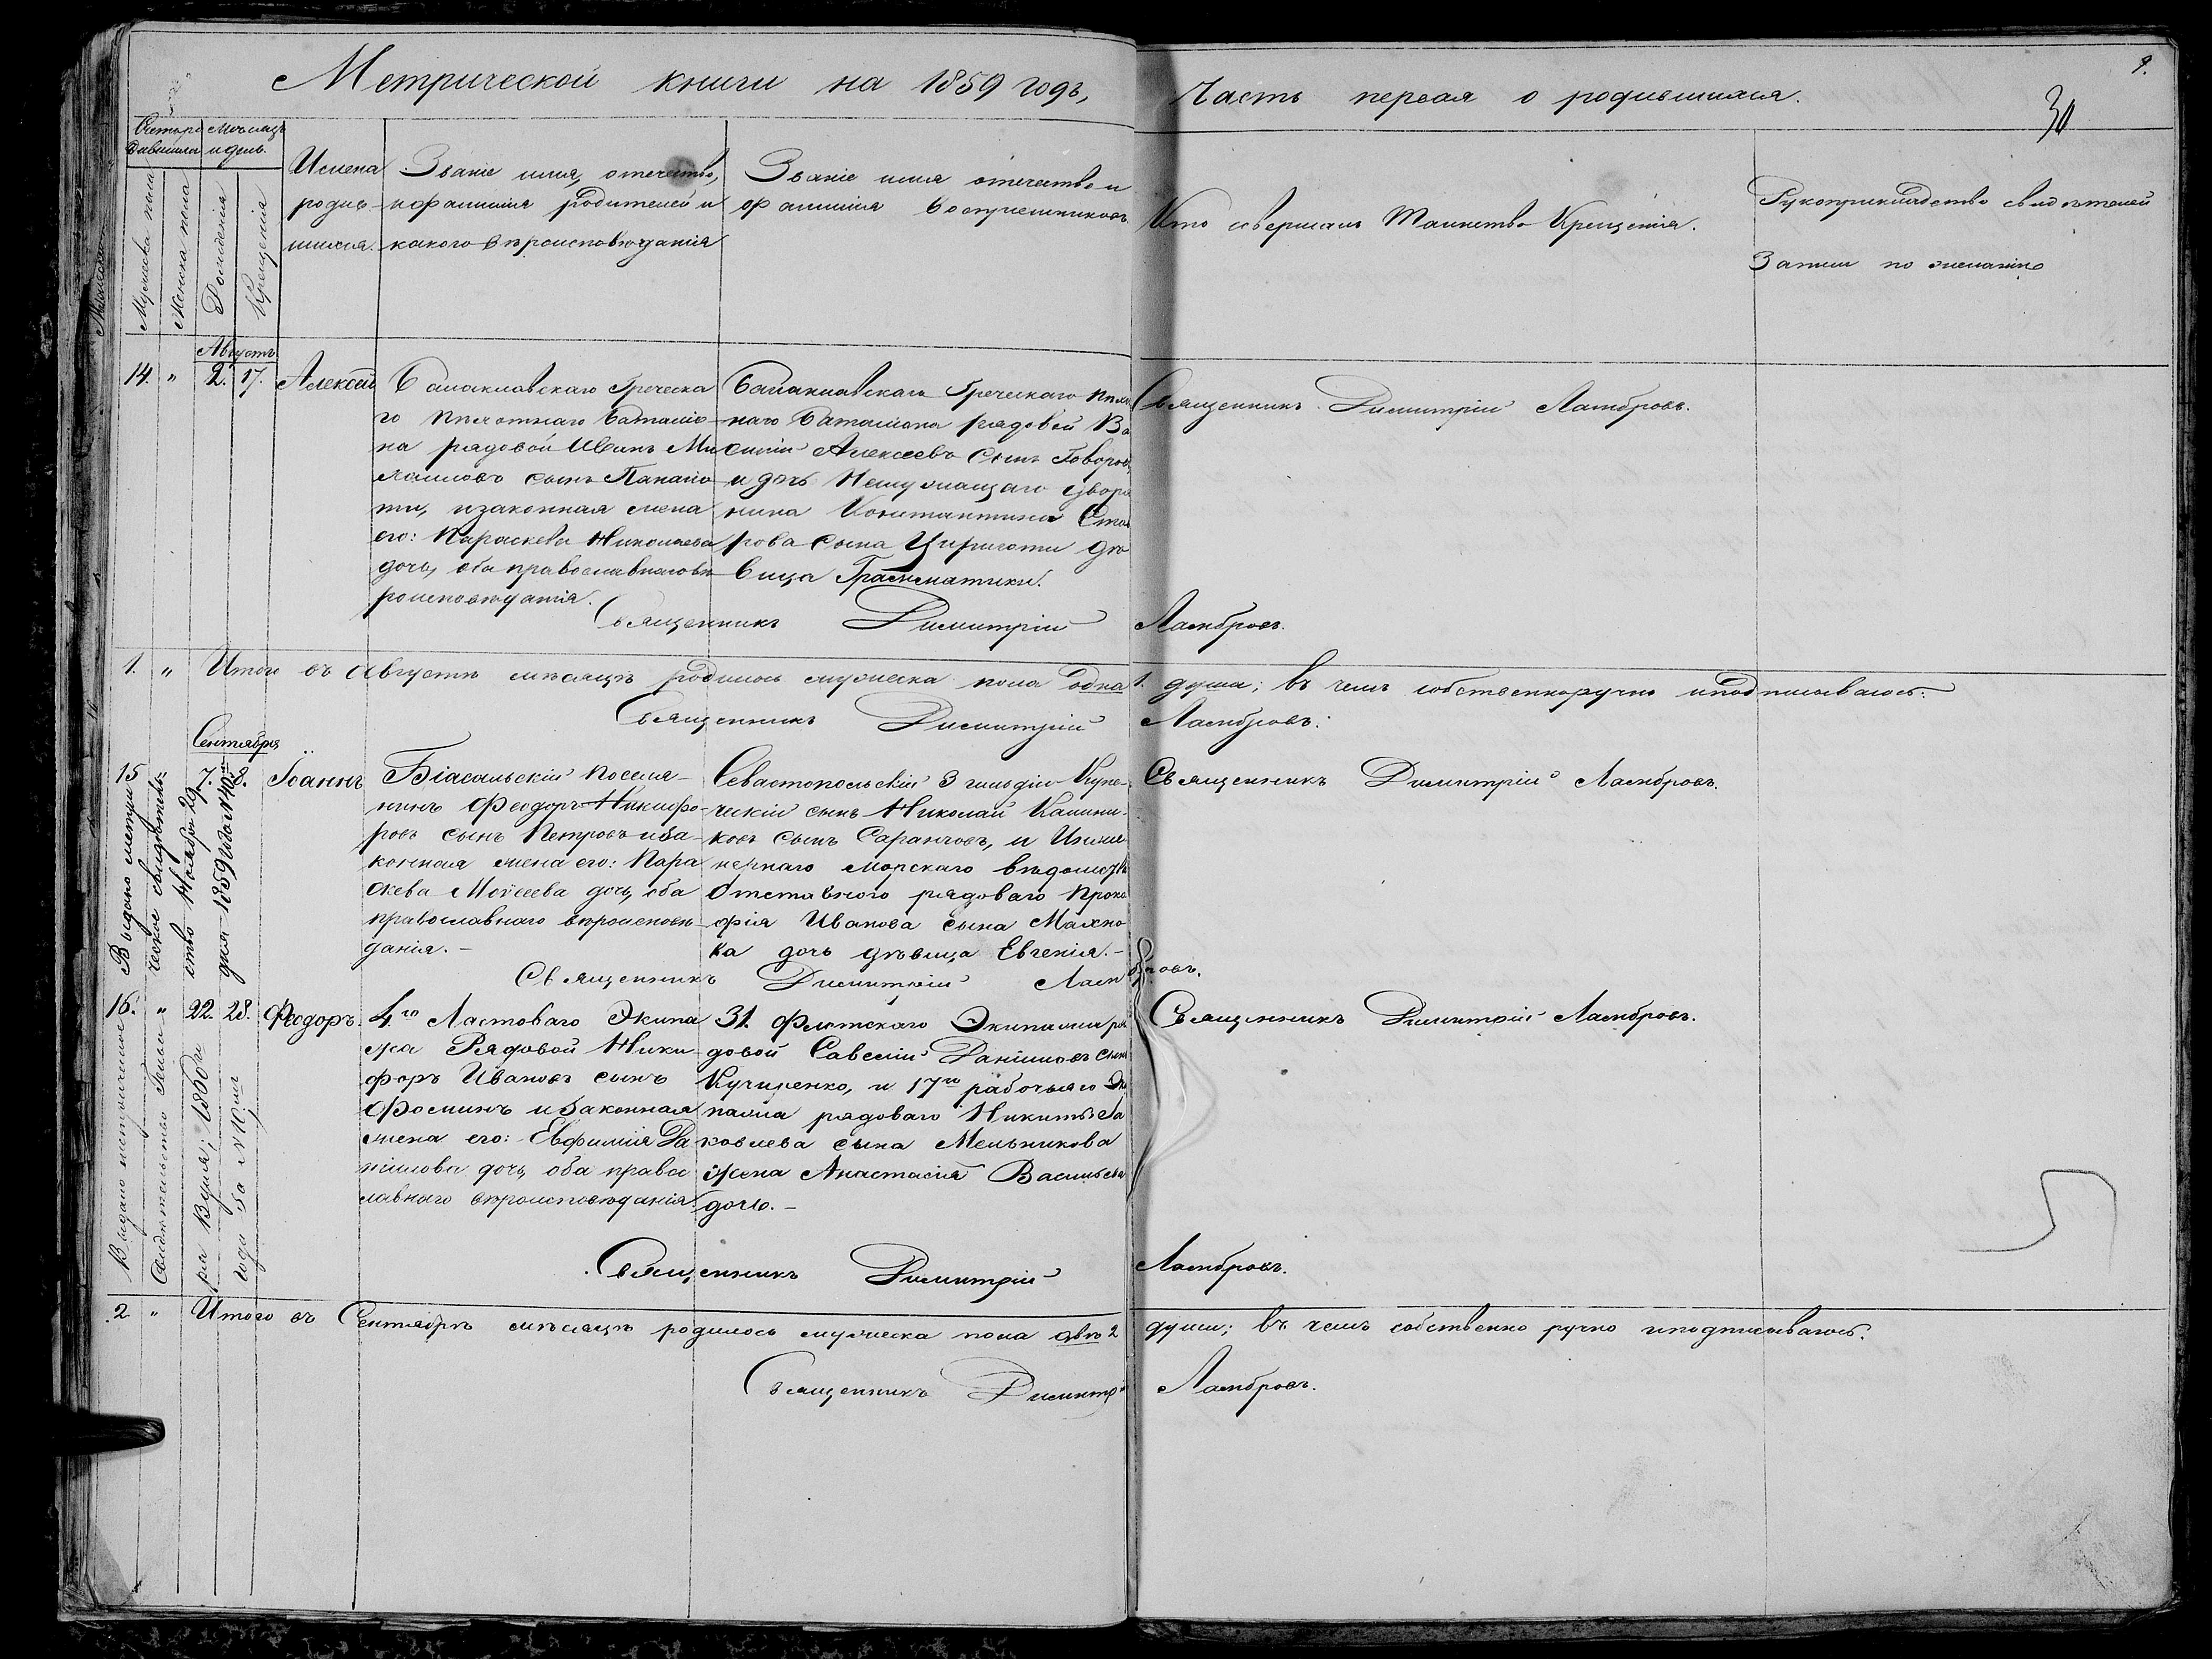 Метрической книги на 1859 годъ,
Часть первая о родившихся.
9.
30
Счетъ родившихся
Мѣсяцъ и день.
Мужеска пола
Женска пола
Рожденія
Крещенія
Имена
родив-
шихся.
Званіе имя, отечество,
и фамилія родителей и
какого вѣроисповѣданія
Званіе имя отечество и
фамилія воспріемниковъ
Кто совершалъ Таинство Крещенія.
Рукоприкладство свидѣтелей
записи по желанію
Августъ
14. " 2. 17. Алексѣй
Балаклавскаго Греческа
го пѣхотнаго баталіо-
на рядовой Иванъ Ми
хаиловъ сынъ Панаіо
ти, и законная жена
его: Параскева Николаева
дочь, оба православнаго вѣ
роисповѣданія.
Балаклавскаго Греческаго пѣхот
наго баталіона рядовой Ва
силій Алексѣевъ сынъ Говоровъ,
и дочь Неслужащаго дворя
нина Константина Став
рова сына Цириготи дѣ
вица Грамматики.
Священникъ Димитрій Ламбровъ.
Священникъ Димитрій Ламбровъ.
1. " Итого въ Августѣ мѣсяцѣ родилось мужеска пола одна 1. душа; въ чемъ собственноручно и подписываюсь:
Священникъ Димитрій Ламбровъ:
Сентября
15 " 7. 8. Іоаннъ
Біасальскій поселя-
нинъ Феодоръ Никифо-
ровъ сынъ Петровъ и за-
конная жена его: Пара
скева Моѵсеева дочь, оба
православнаго вѣроисповѣ-
данія.-
Севастопольскій 3 гильдіи Купе-
ческій сынъ Николай Калини-
ковъ сынъ Саранчовъ, и Инже
нернаго морскаго вѣдомства
Отставнаго рядоваго Проко
фія Иванова сына Махно
ка дочь дѣвица Евгенія.-
Священникъ Димитрій Ламбровъ.
Священникъ Димитрій Ламбровъ.
Выдано метри
ческое свидѣтель-
ство Ноября 29
дня 1859 года №40й
16. " 22. 28. Феодоръ.
4.го Ластоваго Экипа
жа Рядовой Ники-
форъ Ивановъ сынъ
Фоминъ и законная
жена его: Евфимія Да
ніилова дочь, оба право
славнаго вѣроисповѣданія.
31. Флотскаго Экипажа ря
довой Савелій Даніиловъ сынъ
Кучиренко, и 17го рабочьяго Эки
пажа рядоваго Никиты Іа
ковлева сына Мельникова
жена Анастасія Васильева
дочь.-
Священникъ Димитрій Ламбровъ.
Священникъ Димитрій Ламбровъ.
Выдано метрическое
Свидѣтельство Генва
ря 1860
года за №
2 " Итого въ Сентябрѣ мѣсяцѣ родилось мужеска пола двѣ 2 души; въ чемъ собственно ручно и подписываюсь.
Священникъ Димитрій Ламбровъ.